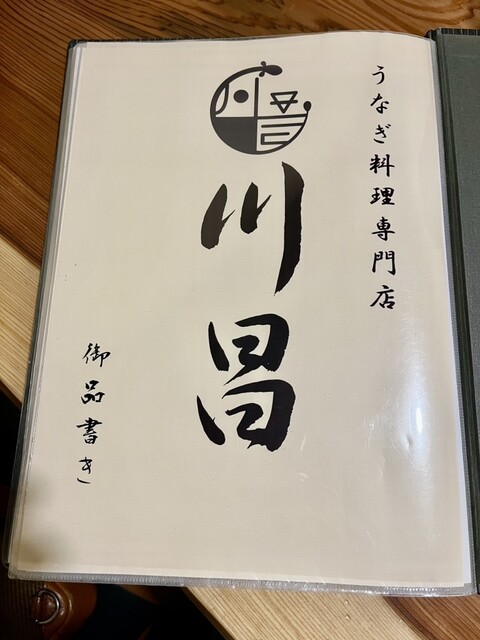 うなぎ料理専門店
川昌
御品書き